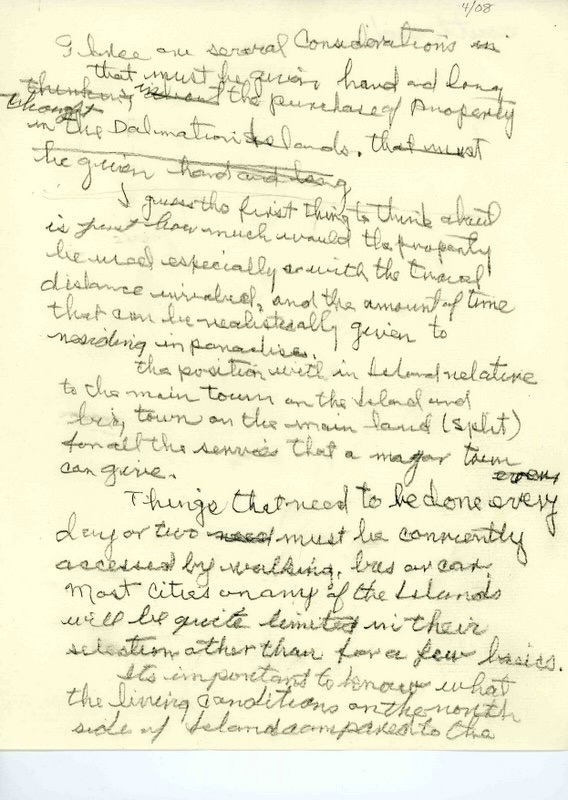 4/08
There are several Considerations in
that must be given hard and long
thinking about the purchase of A property
thought
in the Dalmation Islands. that must
be given hard and long
I guess the first thing to think about
is just how much would the property
be used especially with the travel
distance involved, and the amount of time
that can be realistically given to
residing in paradise.
the position with in Island relative
to the main town on the Island and
big town on the main land (split)
for all the services that a major town
can give. even
Things that need to be done every
day or two need must be conviently
accessed by walking, bus or car.
Most cities on any of the Islands
will be quite limited in their
selection other than for a few basics.
Its important to know what
the living conditions on the north
side of Island compared to the